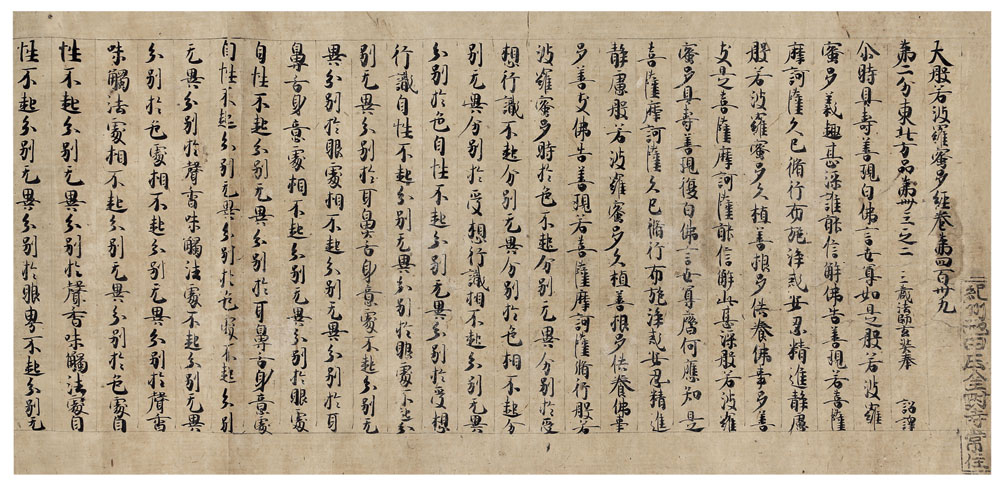 大般若波羅蜜多經卷第四百卅九
第二分東北方品第卌三之二 三藏法師玄奘奉 詔譯
尒時具壽善現白佛言世尊如是般若波羅
蜜多義趣甚深誰能信解佛告善現若菩薩
摩訶薩久已脩行布施淨戒安忍精進靜慮
般若波羅蜜多久植善根多供養佛事多善
友是菩薩摩訶薩能信解此甚深般若波羅
蜜多具壽善現復白佛言世尊齊何應知是
菩薩摩訶薩久已脩行布施淨戒安忍精進
靜慮般若波羅蜜多久植善根多供養佛事
多善友佛告善現若菩薩摩訶薩脩行般若
波羅蜜多時於色不起分別无異分別於受
想行識不起分別无異分別於色相不起分
別无異分別於受想行識相不起分別无異
分別於色自性不起分別无異分別於受想
行識自性不起分別无異分別於眼處不起分
別无異分別於耳鼻舌身意處不起分別无
異分別於眼處相不起分別无異分別於耳
鼻舌身意處相不起分別无異分別於眼處
自性不起分別无異分別於耳鼻舌身意處
自性不起分別无異分別於色處不起分別
无異分別於聲香味觸法處不起分別无異
分別於色處相不起分別无異分別於聲香
味觸法處相不起分別无異分別於色處自
性不起分別无異分別於聲香味觸法處自
性不起分別无異分別於眼界不起分別无
常住